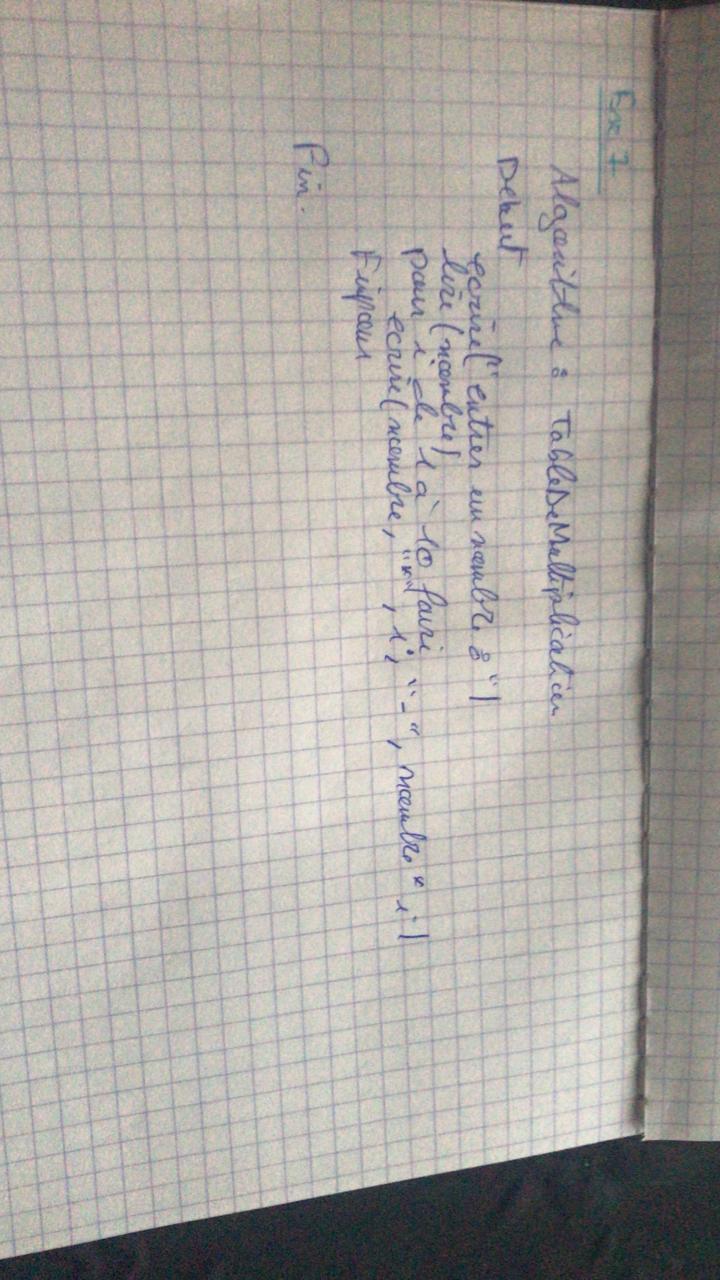 Ex 7
Algorithme : TableDeMultiplication
Debut
ecrire("entrer un nombre : ")
lire(nombre)
pour i de 1 à 10 faire
ecrire(nombre, "*", i, "-", nombre * i)
Finpour
Fin.